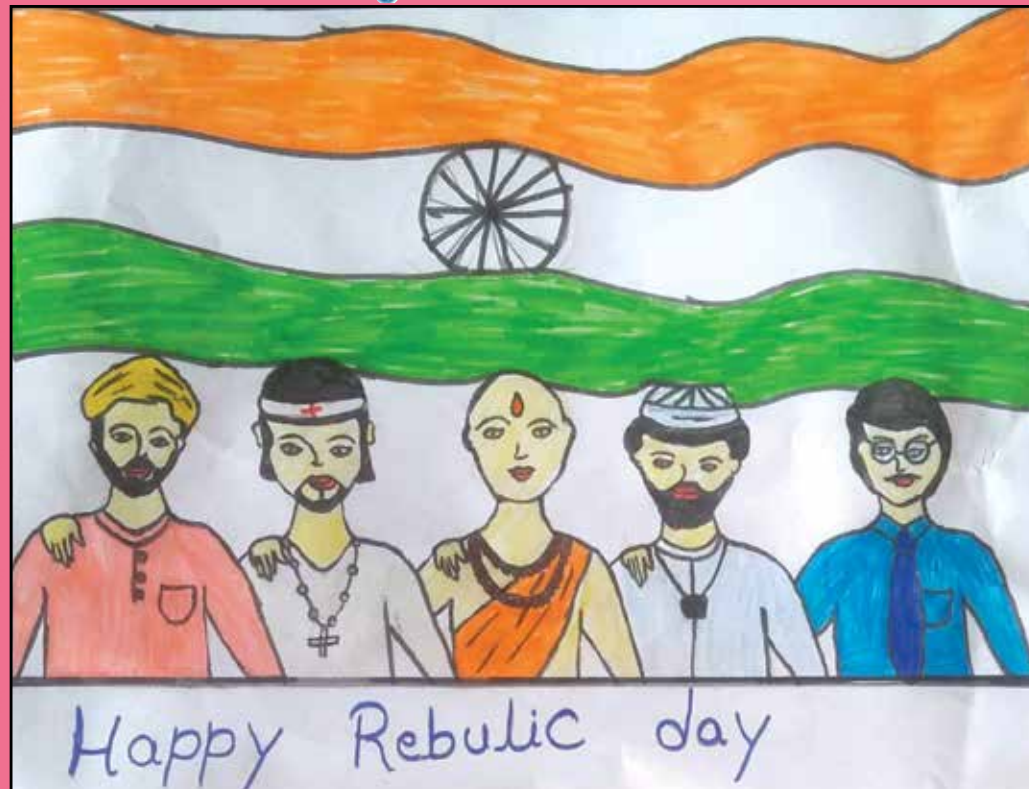 Happy Rebulic day